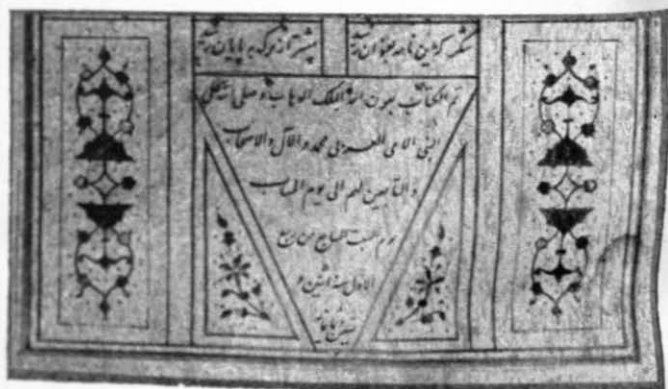 شکر که این نامه بعنوان رسید
پیشتر از مرگ بپایان رسید
تم الکتاب بعون الله الملک الوهاب و صلی الله علی
النبی الامی العربی محمد و الآل و الاصحاب
و التابعین لهم الی یوم الحساب
یوم السبت السابع من ربیع
الاول سنه اثنین و
ثمانمایه